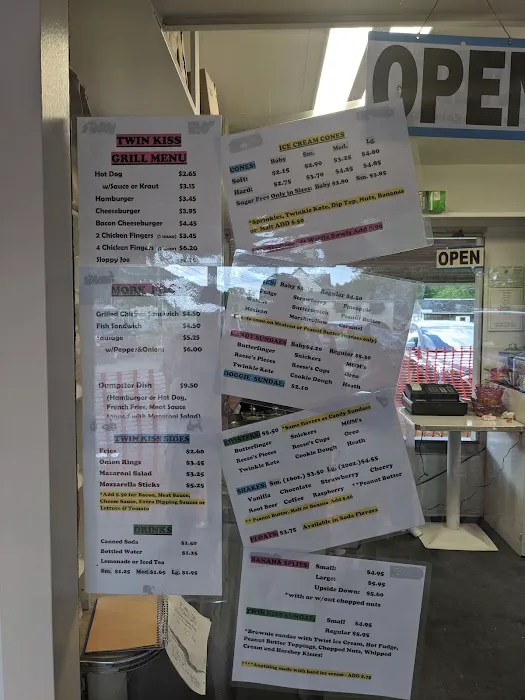 OPEN
OPEN
TWIN KISS
GRILL MENU
Hot Dog $2.65
w/Sauce or Kraut $3.15
Hamburger $3.45
Cheeseburger $3.95
Bacon Cheeseburger $4.45
2 Chicken Fingers $3.45
4 Chicken Fingers $6.20
Sloppy Joe
Grilled Chicken Sandwich $4.50
Fish Sandwich $4.50
Sausage $5.25
w/Pepper&Onions $6.00
Dumpster Dish $9.50
(Hamburger or Hot Dog,
French Fries, Meat Sauce
with Macaroni Salad)
TWIN KISS SIDES
Fries $2.60
Onion Rings $3.45
Macaroni Salad $3.25
Mozzarella Sticks $5.25
*Add $.50 for Bacon, Meat Sauce,
Cheese Sauce, Extra Dipping Sauces or
Lettuce & Tomato
DRINKS
Canned Soda
Bottled Water $1.25
Lemonade or Iced Tea
Sm. $1.25 Med. $1.65 Lg. $1.95
ICE CREAM CONES
CONES: Baby Sm. Med. Lg.
Soft: $2.15 $2.90 $3.25 $4.00
Hard: $2.75 $3.70 $4.25 $4.85
Sugar Free Only in Sizes: Baby $2.90 Sm. $3.95
*Sprinkles, Twinkle Kote, Dip Top, Nuts, Bananas
or Malt ADD $.50
Regular $4.50
Fudge Strawberry Pineapple
Butterscotch Peanut Butter
Mexican Marshmallow Caramel
CANDY SUNDAES Baby $4.20 Regular $5.50
Butterfinger Snickers M&M's
Reese's Pieces Reese's Cups Oreo
Twinkle Kote Cookie Dough Heath
DOGGIE SUNDAE $2.10
TWISTERS $5.50 *Same flavors as Candy Sundaes
Butterfinger Snickers M&M's
Reese's Pieces Reese's Cups Oreo
Twinkle Kote Cookie Dough Heath
SHAKES: Sm. (16oz.) $3.50 Lg. (20oz.) $4.65
Vanilla Chocolate Strawberry Cherry
Root Beer Coffee Raspberry **Peanut Butter
** Peanut Butter, Malt or Banana Add $.50
FLOATS $3.75 Available in Soda Flavors
BANANA SPLITS Small: $4.95
Large: $5.95
Upside Down: $5.60
*with or w/out chopped nuts
TWIN KISS SUNDAE Small $4.95
Regular $5.95
*Brownie sundae with Twist Ice Cream, Hot Fudge,
Peanut Butter Toppings, Chopped Nuts, Whipped
Cream and Hershey Kisses!
****Anything made with hard ice cream - ADD $.75